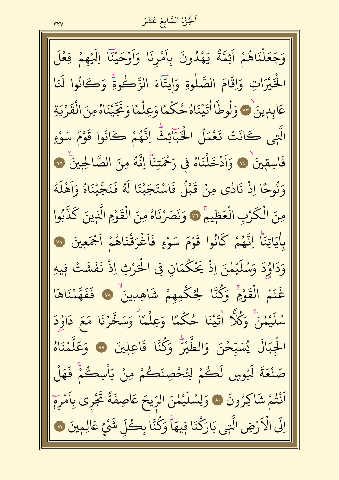 الجزء السابع عشر
٣٢٧
وَجَعَلْنَاهُمْ اَئِمَّةً يَهْدُونَ بِاَمْرِنَا وَاَوْحَيْنَٓا اِلَيْهِمْ فِعْلَ
الْخَيْرَاتِ وَاِقَامَ الصَّلٰوةِ وَا۪يتَٓاءَ الزَّكٰوةِۚ وَكَانُوا لَنَا
عَابِد۪ينَۙ ﴿٧٣﴾ وَلُوطًا اٰتَيْنَاهُ حُكْمًا وَعِلْمًا وَنَجَّيْنَاهُ مِنَ الْقَرْيَةِ
الَّت۪ي كَانَتْ تَعْمَلُ الْخَبَٓائِثَۜ اِنَّهُمْ كَانُوا قَوْمَ سَوْءٍ
فَاسِق۪ينَۙ ﴿٧٤﴾ وَاَدْخَلْنَاهُ ف۪ي رَحْمَتِنَاۜ اِنَّهُ مِنَ الصَّالِح۪ينَ۟ ﴿٧٥﴾
وَنُوحًا اِذْ نَادٰى مِنْ قَبْلُ فَاسْتَجَبْنَا لَهُ فَنَجَّيْنَاهُ وَاَهْلَهُ
مِنَ الْكَرْبِ الْعَظ۪يمِۚ ﴿٧٦﴾ وَنَصَرْنَاهُ مِنَ الْقَوْمِ الَّذ۪ينَ كَذَّبُوا
بِاٰيَاتِنَاۜ اِنَّهُمْ كَانُوا قَوْمَ سَوْءٍ فَاَغْرَقْنَاهُمْ اَجْمَع۪ينَ ﴿٧٧﴾
وَدَاوُ۫دَ وَسُلَيْمٰنَ اِذْ يَحْكُمَانِ فِي الْحَرْثِ اِذْ نَفَشَتْ ف۪يهِ
غَنَمُ الْقَوْمِۚ وَكُنَّا لِحُكْمِهِمْ شَاهِد۪ينَۙ ﴿٧٨﴾ فَفَهَّمْنَاهَا
سُلَيْمٰنَۚ وَكُلًّا اٰتَيْنَا حُكْمًا وَعِلْمًاۘ وَسَخَّرْنَا مَعَ دَاوُ۫دَ
الْجِبَالَ يُسَبِّحْنَ وَالطَّيْرَۜ وَكُنَّا فَاعِل۪ينَ ﴿٧٩﴾ وَعَلَّمْنَاهُ
صَنْعَةَ لَبُوسٍ لَكُمْ لِتُحْصِنَكُمْ مِنْ بَأْسِكُمْۚ فَهَلْ
اَنْتُمْ شَاكِرُونَ ﴿٨٠﴾ وَلِسُلَيْمٰنَ الرّ۪يحَ عَاصِفَةً تَجْر۪ي بِاَمْرِه۪ٓ
اِلَى الْاَرْضِ الَّت۪ي بَارَكْنَا ف۪يهَاۜ وَكُنَّا بِكُلِّ شَيْءٍ عَالِم۪ينَ ﴿٨١﴾